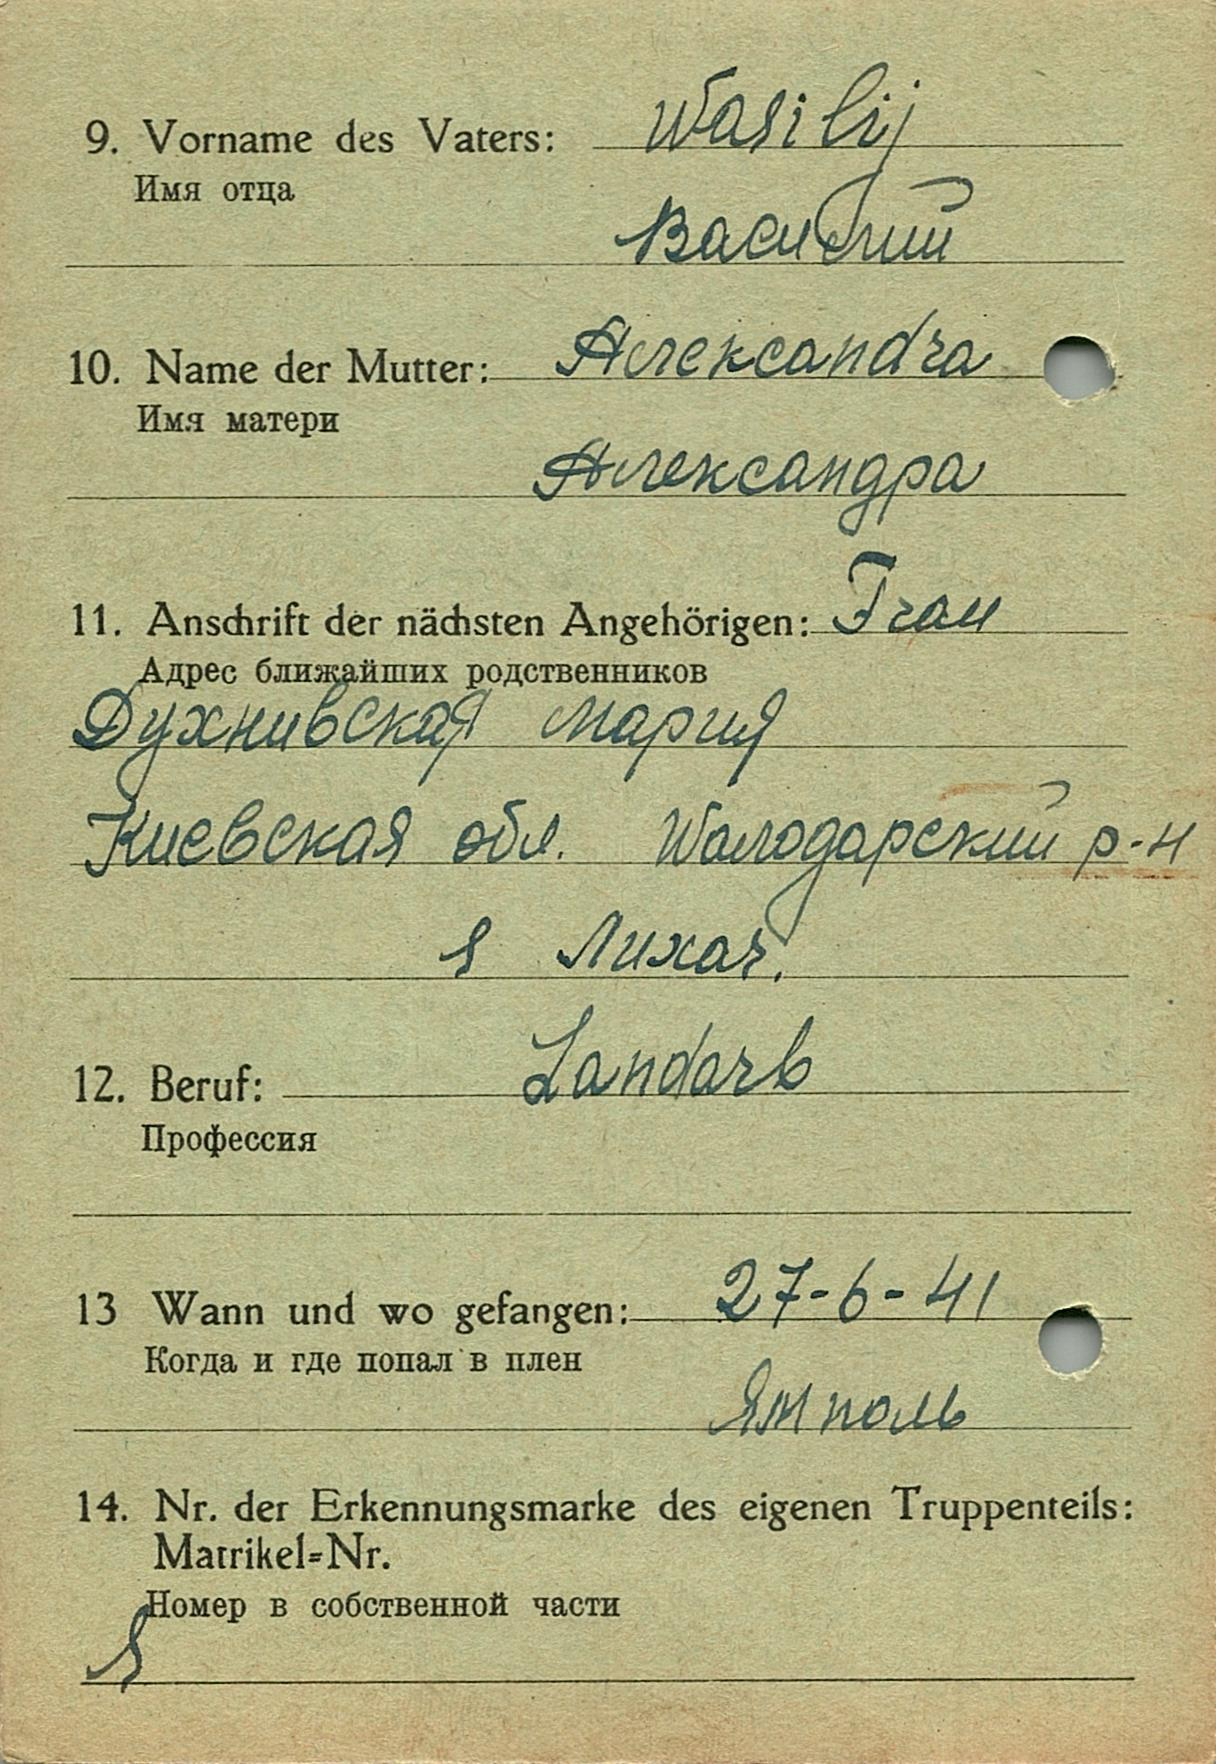 9. Vorname des Vaters: Wasilij
Имя отца
Василий
10. Name der Mutter: Александra
Имя матери
Александра
11. Anschrift der nächsten Angehörigen: Frau
Адрес ближайших родственников
Духнивская Мария
Киевская обл. Wолодарский р-н
Лихач.
12. Beruf: Landarb
Профессия
13 Wann und wo gefangen: 27-6-41
Когда и где попал в плен
Ямполь
14. Nr. der Erkennungsmarke des eigenen Truppenteils:
Matrikel=Nr.
Номер в собственной части